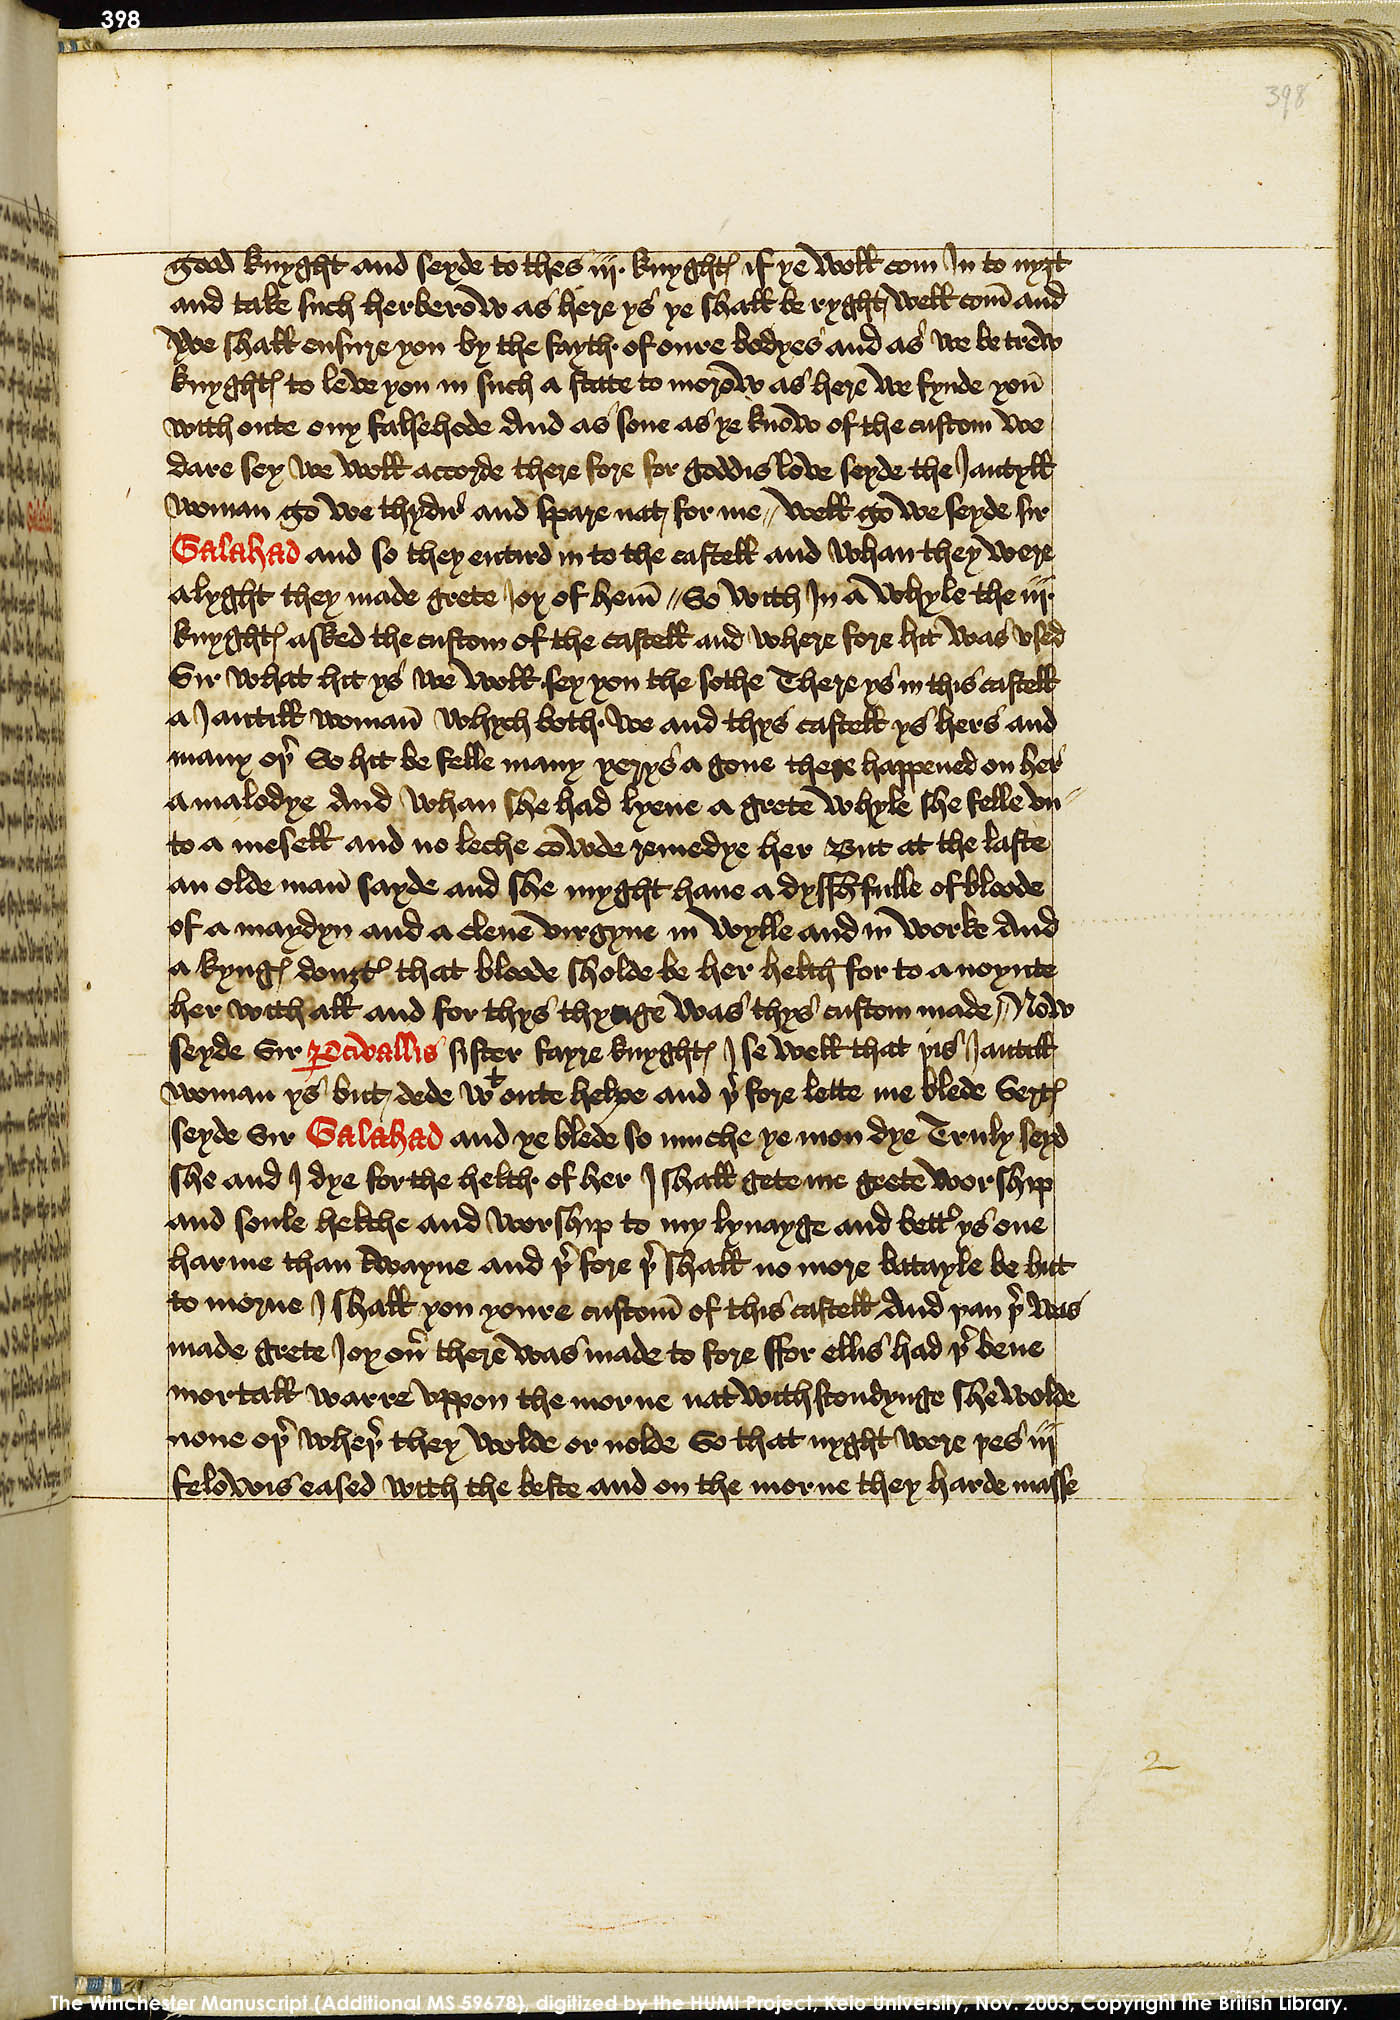 398
398
good knyght and seyde to thes iij. knyghtꝭ if ye woll com In to nyȝt
and take such herberow as here ys ye shall be ryght well com̄ and
We shall ensure you by the fayth of oure bodyes and as we be trew
knyghtꝭ to leve you in such a state to morow as here we fynde you̅
with oute ony falsehode And as sone as ye know of the custom we
dare sey we woll accorde there fore for goddis love seyde the Jantyll
woman go we thydir and spare nat for me // well go we seyde sir
Galahad and so they entird in to the castell and whan they were
alyght they made grete Joy of hem̄ // So with In a whyle the iij.
knyghtꝭ asked the custom of the castell and where fore hit was vsed
Sir what hit ys we woll sey you the sothe There ys in this castell
a Jantill woman̄ whych both we and thys castell ys hers and
many oþ̉ So hit be felle many yerys a gone there happened on her
a malodye And whan she had lyene a grete whyle she felle vn //
to a mesell and no leche cowde remedye her But at the laste
an olde man̄ sayde and she myght have a dysshfulle of bloode
of a maydyn and a clene virgyne in wylle and in worke And
a kyngꝭ douȝtꝭ that bloode sholde be her helth for to a noynte
her with all and for thys thynge was thys custom made // Now
seyde Sir ꝑcivallis sister fayre knyghtꝭ I se well that þis Jantill
woman ys but dede wᵗ oute helpe and þ̉ fore lette me blede Sertꝭ
seyde Sir Galahad and ye blede so muche ye mon dye Truly seyd
she and I dye for the helth of her I shall gete me grete worship
and soule helthe and worship to my lynayge and bettˀ ys one
harme than twayne and þ̉ fore þ̉ shall no more batayle be but
to morne I shall you youre custom̄ of this castell And þan þ̉ was
made grete Joy oủ there was made to fore ffor ellis had þ̉ bene
mortall warre vppon the morne nat withstondynge she wolde
none oþ̉ wheþ̉ they wolde or nolde So that nyght were þes iij
felowis eased with the beste and on the morne they harde masse
2
The Winchester Manuscript (Additional MS 59678), digitized by the HUMI Project, Keio University, Nov. 2003, Copyright the British Library.